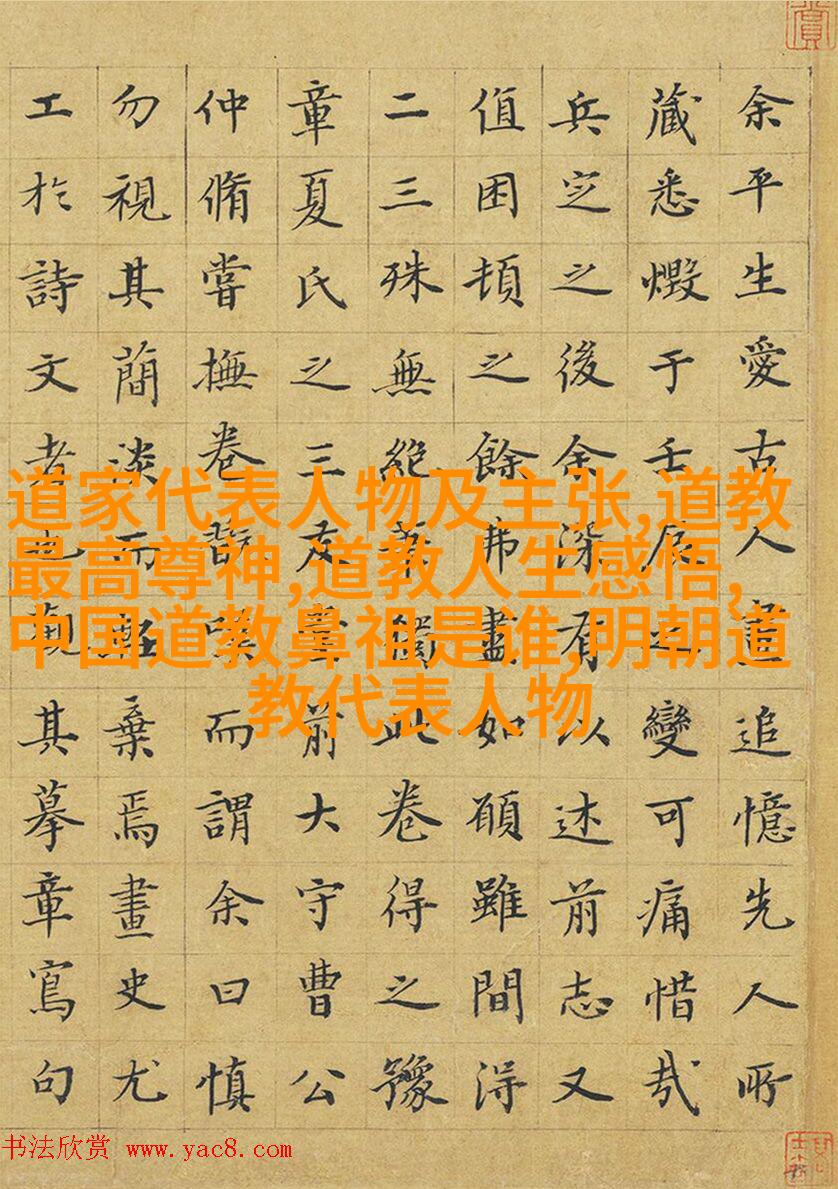 余平生愛古人畫追憶先人所
藏悉燬于壬辰之變可痛惜哉
兵定之後余深有以述前志又
值困頓之餘弗盡如願雖間得
二三殊無絕獨此卷得之豫
章夏氏之三友臺前大守曹公
仲脩嘗撫卷嘆而謂余曰慎
勿視其簡淡而輕棄焉畫史尤
工於詩文者也觀其摹章寫句
道家代表人物及主张,道教
最高尊神,道教人生感悟,
中国道教鼻祖是谁,明朝道
教代表人物
书法欣赏 www.yac8.com